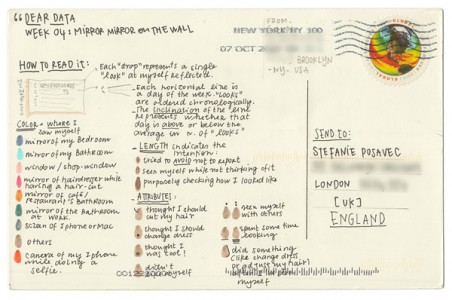 “DEAR DATA
WEEK 04: MIRROR MIRROR ON THE WALL
HOW TO READ IT:
Each "drop" represents a single
"look" at myself reflected.
Each horizontal size is
a day of the week. "Looks"
are ordered chronologically.
The inclination of the line
represents whether that
day is above or below the
average in n. of "looks"
COLOR = where I
saw myself
mirror of my Bedroom
mirror of my Bathroom
window / shop-window
mirror of hairdresser while
having a hair-cut
mirror of café/
restaurant's Bathroom
mirror of the Bathroom
at work
screen of iPhone or Mac
others
camera of my iPhone
while doing a
selfie.
LENGTH indicates the
intention:
tried to AVOID not to report
seen myself while not thinking of it
purposely checking how I looked like
ATTRIBUTES:
thought I should
cut my hair
thought I should
change dress
thought I
was
didn't
myself
seen myself
with others
spent some time
looking
did something
(like change dress
or adjust my hair)
myself
FROM:
BROOKLYN
-NY- USA
NEW YORK NY 100
07 OCT
GLOBAL
SEND TO:
STEFANIE POSAVEC
LONDON
[UK]
ENGLAND